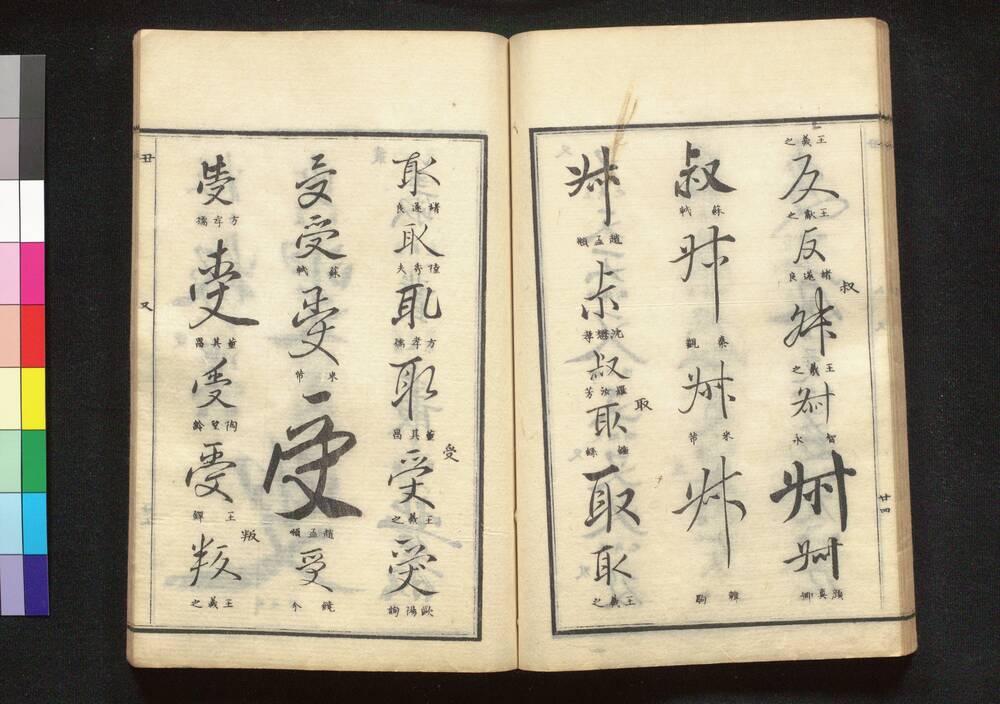 王羲之
反
王獻之
反
褚遂良
叔
叔
王羲之
叔
智永
叔
叔
顏真卿
廿四
叔
蘇軾
叔
秦觀
叔
米芾
叔
韓駒
叔
趙孟頫
叔
沈懋孝
叔
羅汝芳
取
取
鍾繇
取
取
王羲之
取
褚遂良
取
陸秀夫
取
方孝孺
取
董其昌
受
受
王羲之
受
歐陽詢
受
受
蘇軾
受
米芾
受
趙孟頫
受
方孝孺
受
董其昌
受
陶望齡
受
王鐸
叛
叛
王羲之
又